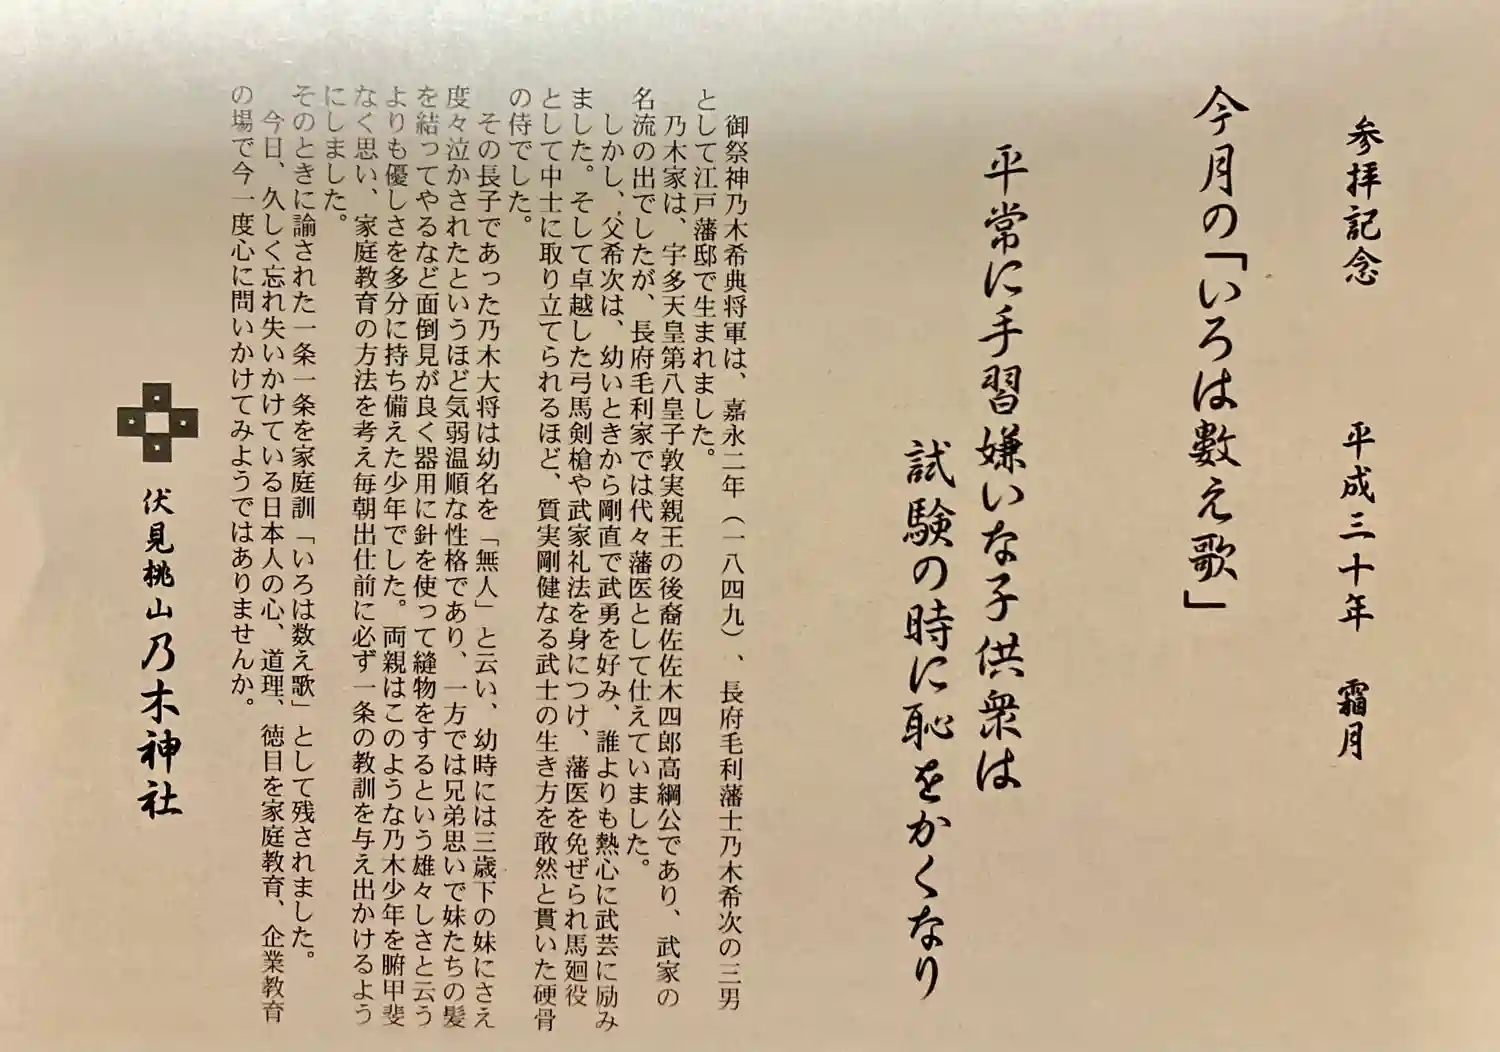 参拝記念　平成三十年　霜月
今月の「いろは數え歌」
平常に手習嫌いな子供衆は
試験の時に恥をかくなり
御祭神乃木希典将軍は、嘉永二年（一八四九）、長府毛利藩士乃木希次の三男
として江戸藩邸で生まれました。
乃木家は、宇多天皇第八皇子敦実親王の後裔佐佐木四郎高綱公であり、武家の
名流の出でしたが、長府毛利家では代々藩医として仕えていました。
しかし、父希次は、幼いときから剛直で武勇を好み、誰よりも熱心に武芸に励み
ました。そして卓越した弓馬剣槍や武家礼法を身につけ、藩医を免ぜられ馬廻役
として中士に取り立てられるほど、質実剛健なる武士の生き方を敢然と貫いた硬骨
の侍でした。
その長子であった乃木大将は幼名を「無人」と云い、幼時には三歳下の妹にさえ
度々泣かされたというほど気弱温順な性格であり、一方では兄弟思いで妹たちの髪
を結ってやるなど面倒見が良く器用に針を使って縫物をするという雄々しさと云う
よりも優しさを多分に持ち備えた少年でした。両親はこのような乃木少年を腑甲斐
なく思い、家庭教育の方法を考え毎朝出仕前に必ず一条の教訓を与え出かけるよう
にしました。
そのときに諭された一条一条を家庭訓「いろは数え歌」として残されました。
今日、久しく忘れ失いかけている日本人の心、道理、徳目を家庭教育、企業教育
の場で今一度心に問いかけてみようではありませんか。
伏見桃山乃木神社